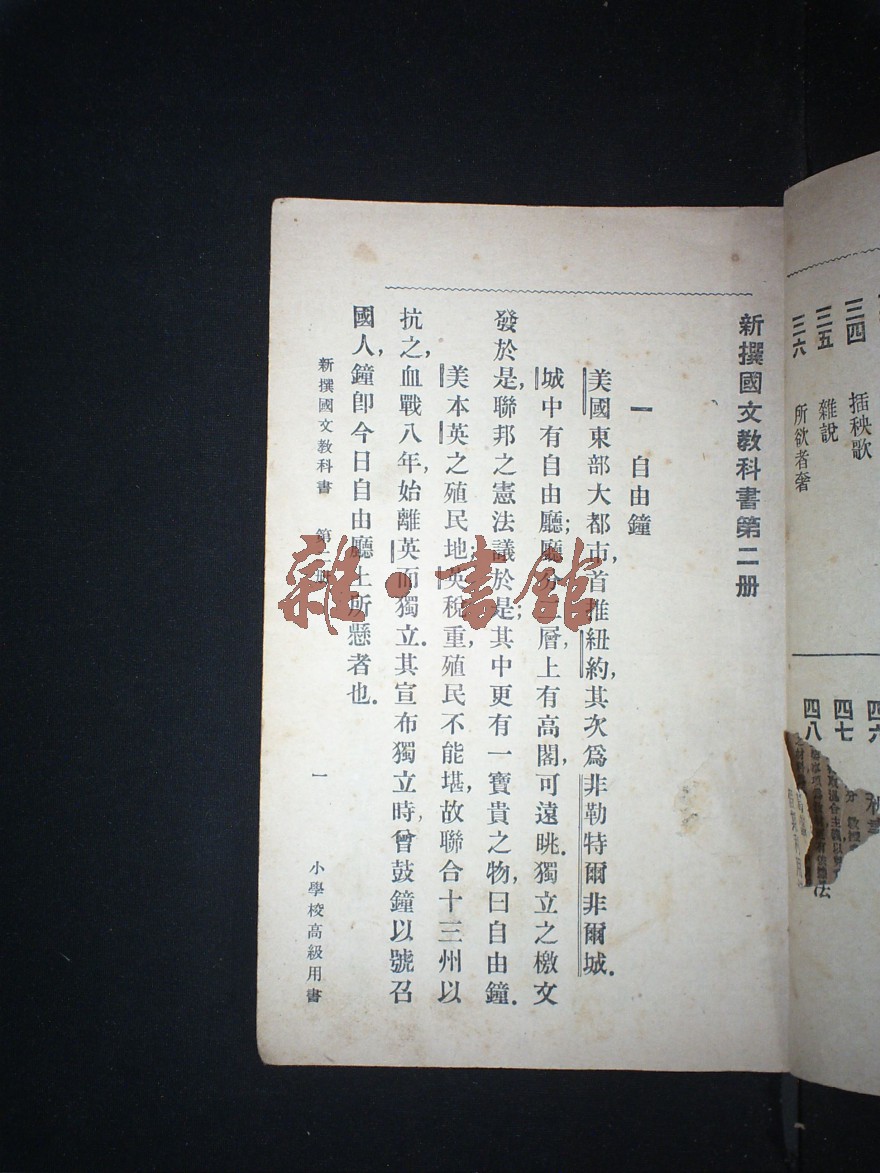 三四 插秧歌
三五 雜說
三六 所欲者奢
四六
四七
四八
法
新撰國文教科書第二册
一 自由鐘
美國東部大都市,首推紐約,其次爲非勒特爾非爾城.
城中有自由廳;廳分二層,上有高閣,可遠眺.獨立之檄文
發於是,聯邦之憲法議於是;其中更有一寶貴之物,曰自由鐘.
美本英之殖民地;英稅重,殖民不能堪,故聯合十三州以
抗之,血戰八年,始離英而獨立.其宣布獨立時,曾鼓鐘以號召
國人,鐘卽今日自由廳上所懸者也.
新撰國文教科書 第二册 一 小學校高級用書
雜·書館